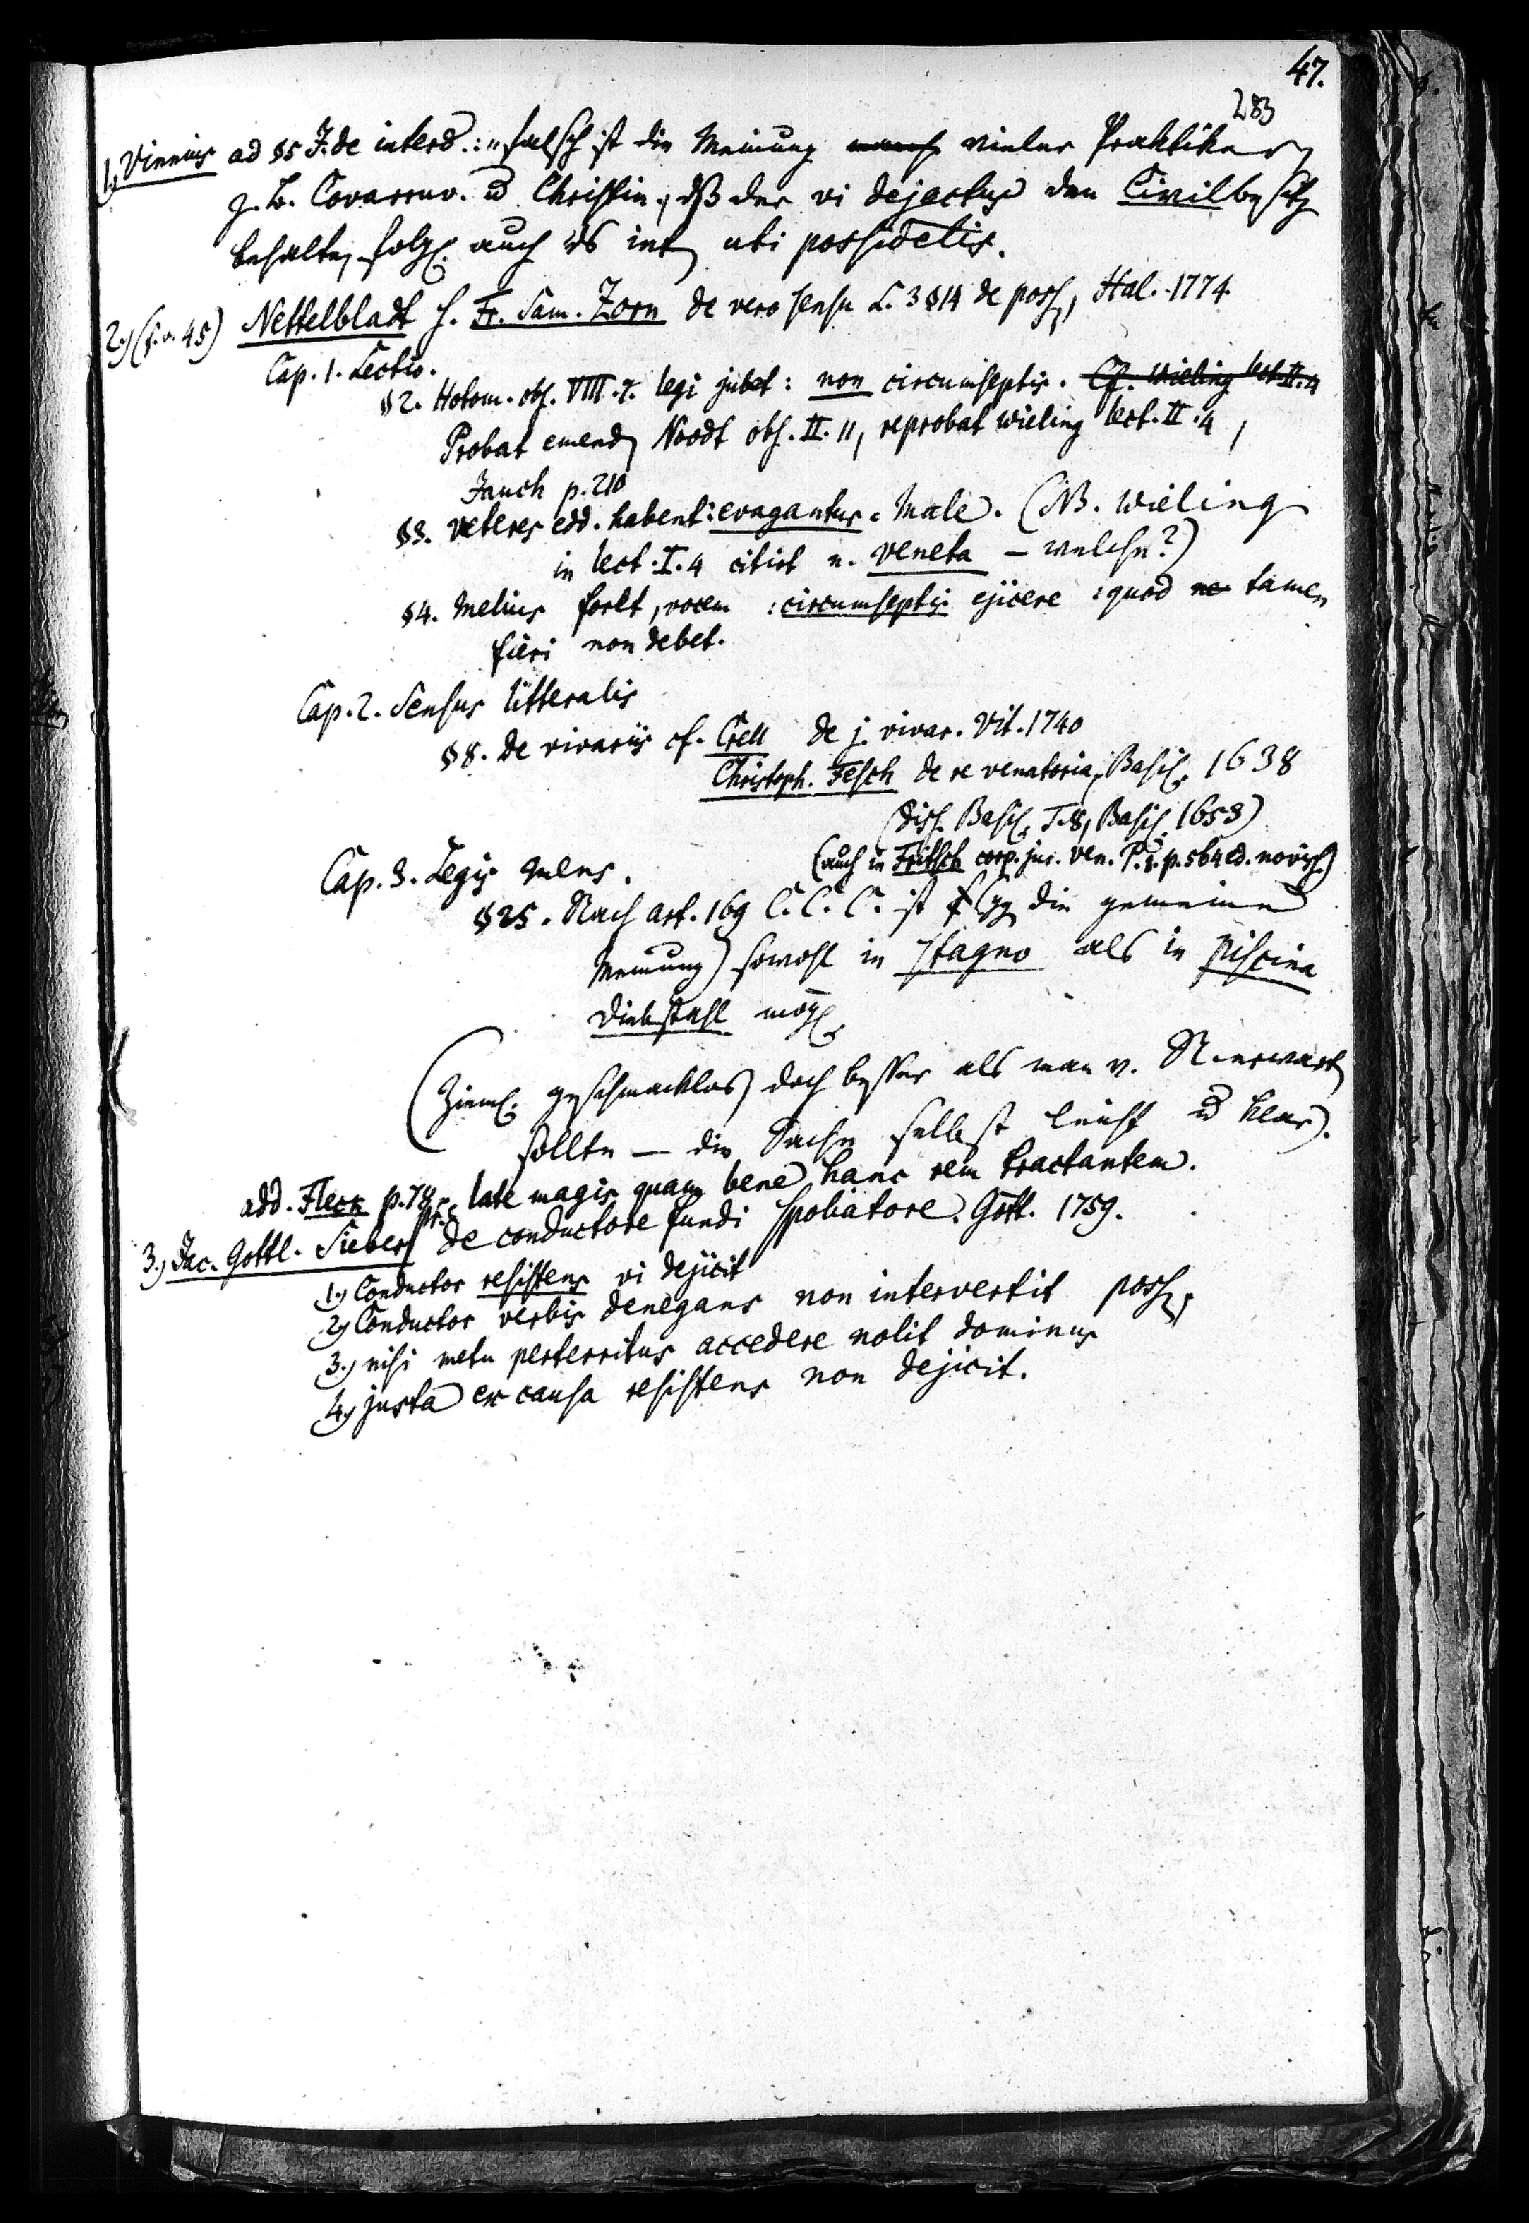 47.
283
1.) Vinnius ad §5 J. de interd.: „falsch ist die Meinung manch vieler Praktiker,
z. B. Covarruv. u Christin., dß der vi dejectus den Civilbesitz
behalte, folgl. auch ds int. uti possidetis.
2.) (S. o. 45) Nettelbladt s. Fr. Sam. Zorn de vero sensu L. 3 §14 de poss., Hal. 1774.
Cap. 1. Lectio.
§2. Hotom. obs. VIII. 7. legi jubet: non circumseptis. Cf. Wieling lect. II. 4
Probat emend. Noodt obs. II. 11, reprobat Wieling lect. II. 4,
Jauch p. 210
§3. Veteres edd. habent: evagantur. Male. (NB. Wieling
in lect. I. 4 citirt e. Veneta – welche?)
§4. Melius foret, vocem: circumseptis ejicere: quod ne tamen
fieri non debet.
Cap. 2. Sensus litteralis
§8. De vivariis cf. Crell de j. vivar. Vit. 1740
Christoph. Fesch de re venatoria, Basil. 1638
(Diss. Basil. T. 8, Basil. 1653)
(auch in Fritsch corp. jur. ven. P. 1. p. 564 ed. noviss.)
Cap. 3. Legis mens.
§25. Nach art. 169 C. C. C. ist (gg die gemeine
Meinung) sowohl in stagno als in piscina
Diebstahl mögl.
(Ziml. geschmacklos, doch besser als man v. N. erwarten
sollte — die Sache selbst leicht u klar).
add. Fleck p. 78. late magis quam bene hanc rem tractantem.
3.) Jac. Gottl. Sieber pr. de conductore fundi spoliatore. Gött. 1759.
1.) Conductor resistens vi dejicit
2.) Conductor verbis denegans non intervertit poss.,
3.) nisi metu perterritus accedere nolit dominus
4.) justa ex causa resistens non dejicit.